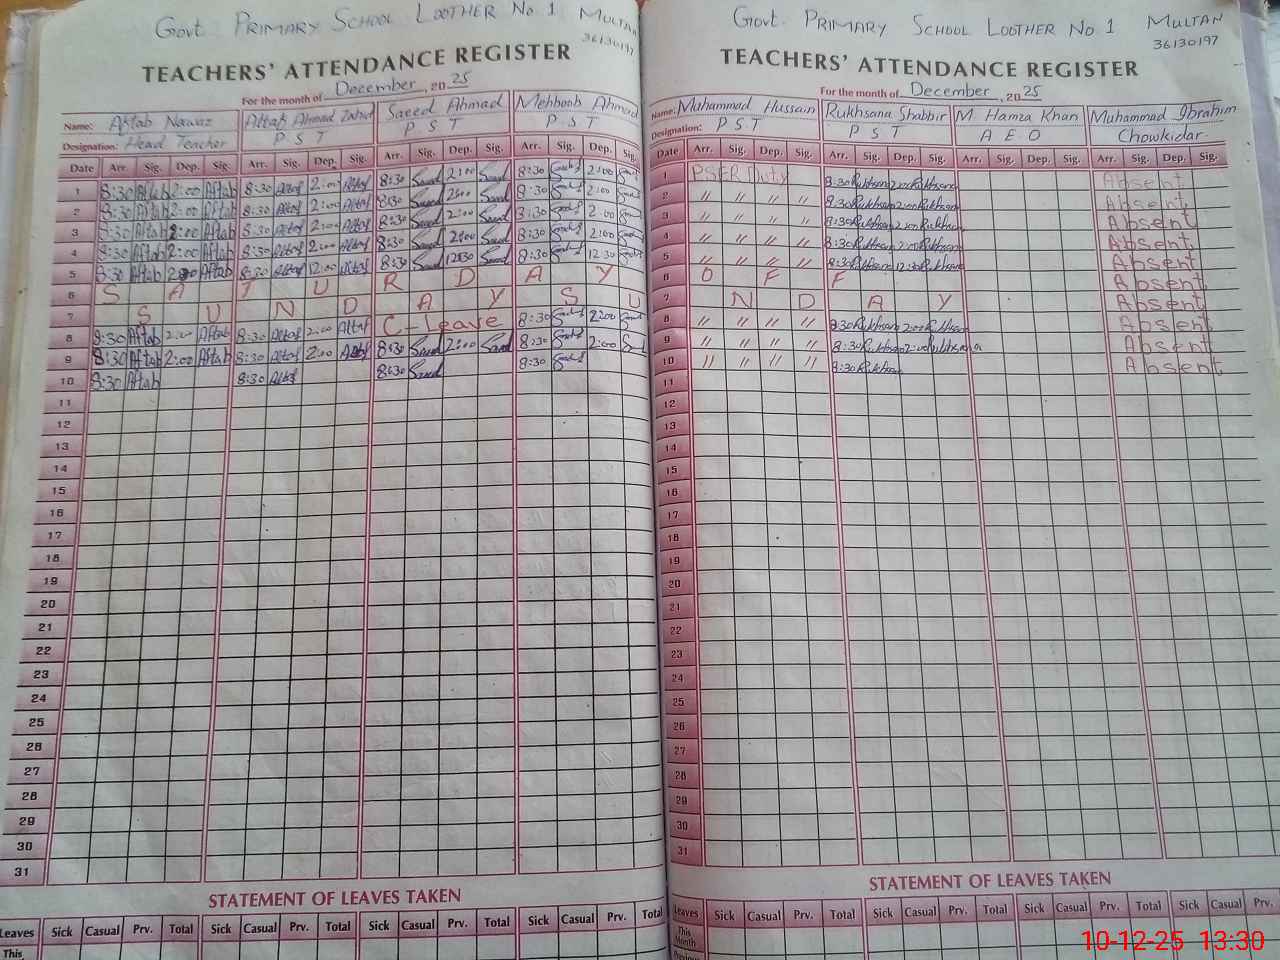 Govt. PRIMARY SCHOOL LOOTHER No 1 MULTAN
36130197
TEACHERS' ATTENDANCE REGISTER
For the month of December, 2025
Name: Aftab Nawaz Altaf Ahmad Zahid Saeed Ahmad Mehboob Ahmad
Designation: Head Teacher P S T P S T P S T
Date Arr. Sig. Dep. Sig. Arr. Sig. Dep. Sig. Arr. Sig. Dep. Sig. Arr. Sig. Dep. Sig.
1 8:30 Aftab 2:00 Aftab 8:30 Altaf 2:00 Altaf 8:30 Saeed 2:00 Saeed 8:30 2:00
2 8:30 Aftab 2:00 Aftab 8:30 Altaf 2:00 Altaf 8:30 Saeed 2:00 Saeed 8:30 2:00
3 8:30 Aftab 2:00 Aftab 8:30 Altaf 2:00 Altaf 8:30 Saeed 2:00 Saeed 8:30 2:00
4 8:30 Aftab 2:00 Aftab 8:30 Altaf 2:00 Altaf 8:30 Saeed 2:00 Saeed 8:30 2:00
5 8:30 Aftab Aftab 8:30 Altaf 12:00 Altaf 8:30 Saeed 12:30 Saeed 8:30 12:30
6 S A T U R D A Y
7 S U N D A Y S U
8 8:30 Aftab 2:00 Aftab 8:30 Altaf 2:00 Altaf C-Leave 8:30 2:00
9 8:30 Aftab 2:00 Aftab 8:30 Altaf 2:00 Altaf 8:30 Saeed 2:00 Saeed 8:30 2:00
10 8:30 Aftab 8:30 Altaf 8:30 Saeed 8:30
11
12
13
14
15
16
17
18
19
20
21
22
23
24
25
26
27
28
29
30
31
STATEMENT OF LEAVES TAKEN
Leaves Sick Casual Prv. Total Sick Casual Prv. Total Sick Casual Prv. Total Sick Casual Prv. Total
This
Govt. PRIMARY SCHOOL LOOTHER No 1 MULTAN
36130197
TEACHERS' ATTENDANCE REGISTER
For the month of December, 2025
Name: Muhammad Hussain Rukhsana Shabbir M. Hamza Khan Muhammad Ibrahim
Designation: P S T P S T A E O Chowkidar.
Date Arr. Sig. Dep. Sig. Arr. Sig. Dep. Sig. Arr. Sig. Dep. Sig. Arr. Sig. Dep. Sig.
1 PSER Duty 8:30 Rukhsana 2:00 Rukhsana Absent
2 " " " " 8:30 Rukhsana 2:00 Rukhsana Absent
3 " " " " 8:30 Rukhsana 2:00 Rukhsana Absent
4 " " " " 8:30 Rukhsana 2:00 Rukhsana Absent
5 " " " " 8:30 Rukhsana 12:30 Rukhsana Absent
6 O F F Absent
7 N D A Y Absent
8 " " " " 8:30 Rukhsana 2:00 Rukhsana Absent
9 " " " " 8:30 Rukhsana 2:00 Rukhsana Absent
10 " " " " 8:30 Rukhsana Absent
11
12
13
14
15
16
17
18
19
20
21
22
23
24
25
26
27
28
29
30
31
STATEMENT OF LEAVES TAKEN
Leaves Sick Casual Prv. Total Sick Casual Prv. Total Sick Casual Prv. Total Sick Casual Prv.
This Month
10-12-25 13:30